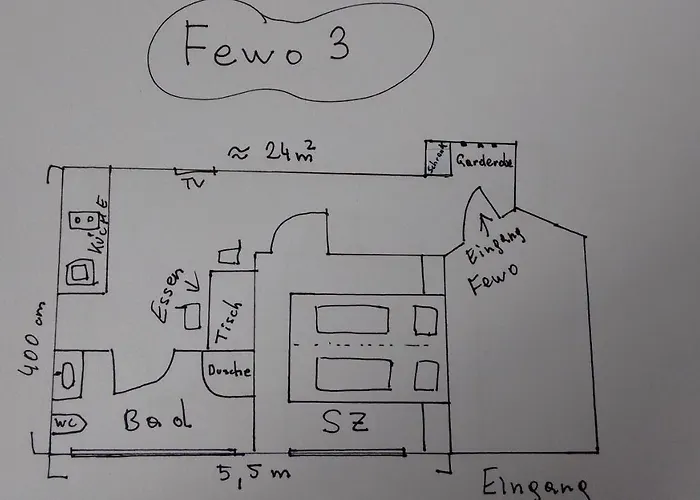 Fewo 3
≈ 24 m²
Schrank
Garderobe
TV
KÜCHE
Eingang
Fewo
Essen
Tisch
400 cm
Dusche
WC
Bad
SZ
5,5 m
Eingang